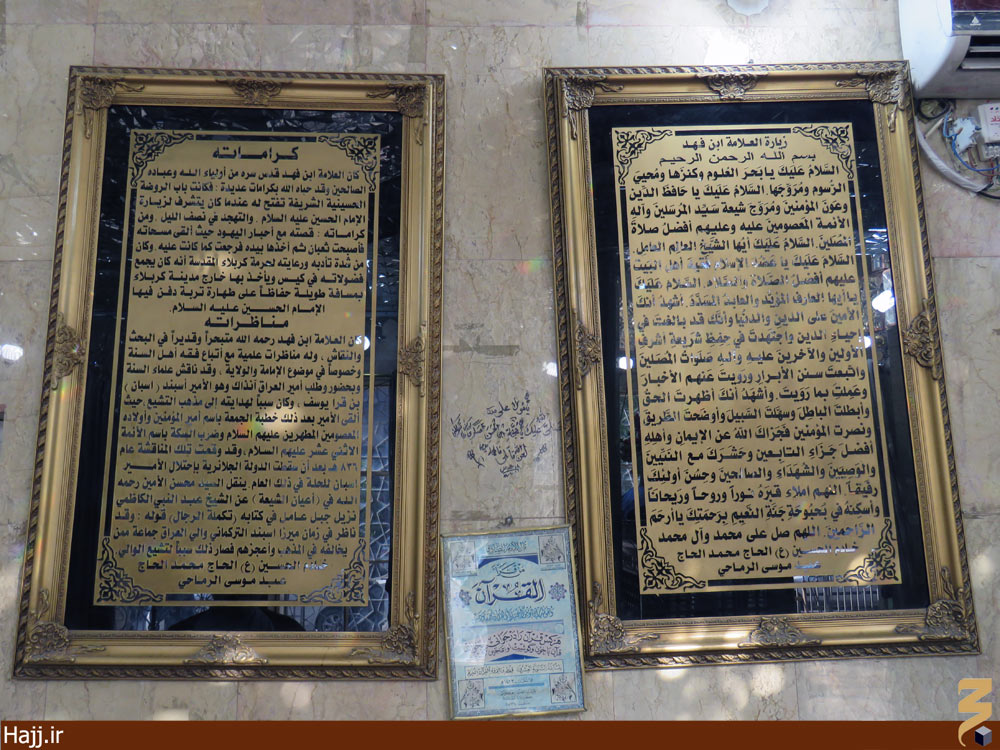 زيارة العلامة ابن فهد
بسم الله الرحمن الرحيم
السَّلامُ عَلَيكَ يا بَحرَ العُلومِ وكَنزَها ومُحيي
الرسومِ ومُرَوِّجَها. السَّلامُ عَلَيكَ يا حافظَ الدّين
وعَونَ المؤمنينَ ومُرَوِّجَ شيعة سَيِّدِ المُرسَلينَ وآله
الأئمة المَعصومينَ عليه وعليهم أفضَلُ صلاة
المُصَلّينَ. السَّلامُ عَلَيكَ أيُّها الشَّيخُ العالِمُ العامل.
عليهم أفضل الصلاة والسلام. السَّلامُ عَلَيكَ
يا أيها العارفُ المُؤيَّد والعابدُ المُسدَّدُ. أشهدُ أنَّكَ
الأمينُ على الدينِ والدُّنيا وأنَّكَ قد بالَغتَ في
إحياءِ الدينِ واجتَهدتَ في حِفظِ شريعة أشرف
الأولينَ والآخرينَ عليه وآله صَلَواتُ المُصَلّينَ
واتَّبعتَ سنن الأبرارِ ورَوَيتَ عَنهُم الأخبارَ
وعَمِلتَ بما رَوَيتَ. وأشهَدُ أنَّكَ أظهَرتَ الحقَّ
وأبطلتَ الباطلَ وسهَّلتَ السَّبيلَ وأوضَحتَ الطَّريقَ
ونصرتَ المؤمنينَ فَجَزاكَ اللهُ عن الإيمانِ وأهلِهِ
أفضلَ جَزاءِ التابعينَ وحَشَرَكَ مع النَّبيّينَ
والوَصيّينَ والشُّهَداءِ والصالحينَ وحَسُنَ أولئكَ
رفيقاً. اللهم املاء قَبرَهُ نوراً وروحاً ورَيحاناً
وأسكنهُ في بُحبُوحَةِ جَنَّةِ النَّعيمِ بِرَحمَتِكَ يا أرحَمَ
الراحمين. اللهم صل على محمد وآل محمد
خادم الحسين (ع) الحاج محمد الحاج
عبد موسى الرماحي
كراماته
كان العلامة ابن فهد قدس سره من أولياء الله وعباده
الصالحين وقد حباه الله بكرامات عديدة : فكانت باب الروضة
الحسينية الشريفة تفتح له عندما كان يتشرف لزيارة
الإمام الحسين عليه السلام . والتهجد في نصف الليل. ومن
كراماته : قصته مع أحبار اليهود حيث ألقى مسحاته
فأصبحت ثعبان ثم أخذها بيده فرجعت كما كانت عليه. وكان
من شدة تأدبه ورعايته لحرمة كربلاء المقدسة أنه كان يجمع
فضولاته في كيس ويأخذ بها خارج مدينة كربلاء
بمسافة طويلة حفاظاً على طهارة تربة دفن فيها
الإمام الحسين عليه السلام.
مناظراته
كان العلامة ابن فهد رحمه الله متبحراً وقديراً في البحث
والنقاش . وله مناظرات علمية مع أتباع فقه أهل السنة
وخصوصاً في موضوع الإمامة والولاية . وقد ناقش علماء السنة
وبحضور وطلب أمير العراق آنذاك وهو الأمير أسبند ( اسبان )
بن قرا يوسف . وكان سبباً لهدايته إلى مذهب التشيع. حيث
ألقى الأمير بعد ذلك خطبة الجمعة باسم أمير المؤمنين وأولاده
المعصومين المطهرين عليهم السلام وضرب السكة باسم الأئمة
الاثني عشر عليهم السلام. وقد وقعت تلك المناقشة عام
٨٣٦ هـ بعد أن سقطت الدولة الجلائرية بإحتلال الأمير
اسبان للحلة في ذلك العام. ينقل السيد محسن الأمين رحمه
الله في (أعيان الشيعة) عن الشيخ عبد النبي الكاظمي
نزيل جبل عامل في كتابه (تكملة الرجال) قوله : وقد
ناظر في زمان ميرزا أسبند التركماني والي العراق جماعة ممن
يخالفه في المذهب وأعجزهم فصار ذلك سبباً لتشيع الوالي
خادم الحسين (ع) الحاج محمد الحاج
عبد موسى الرماحي
القرآن
Hajj.ir